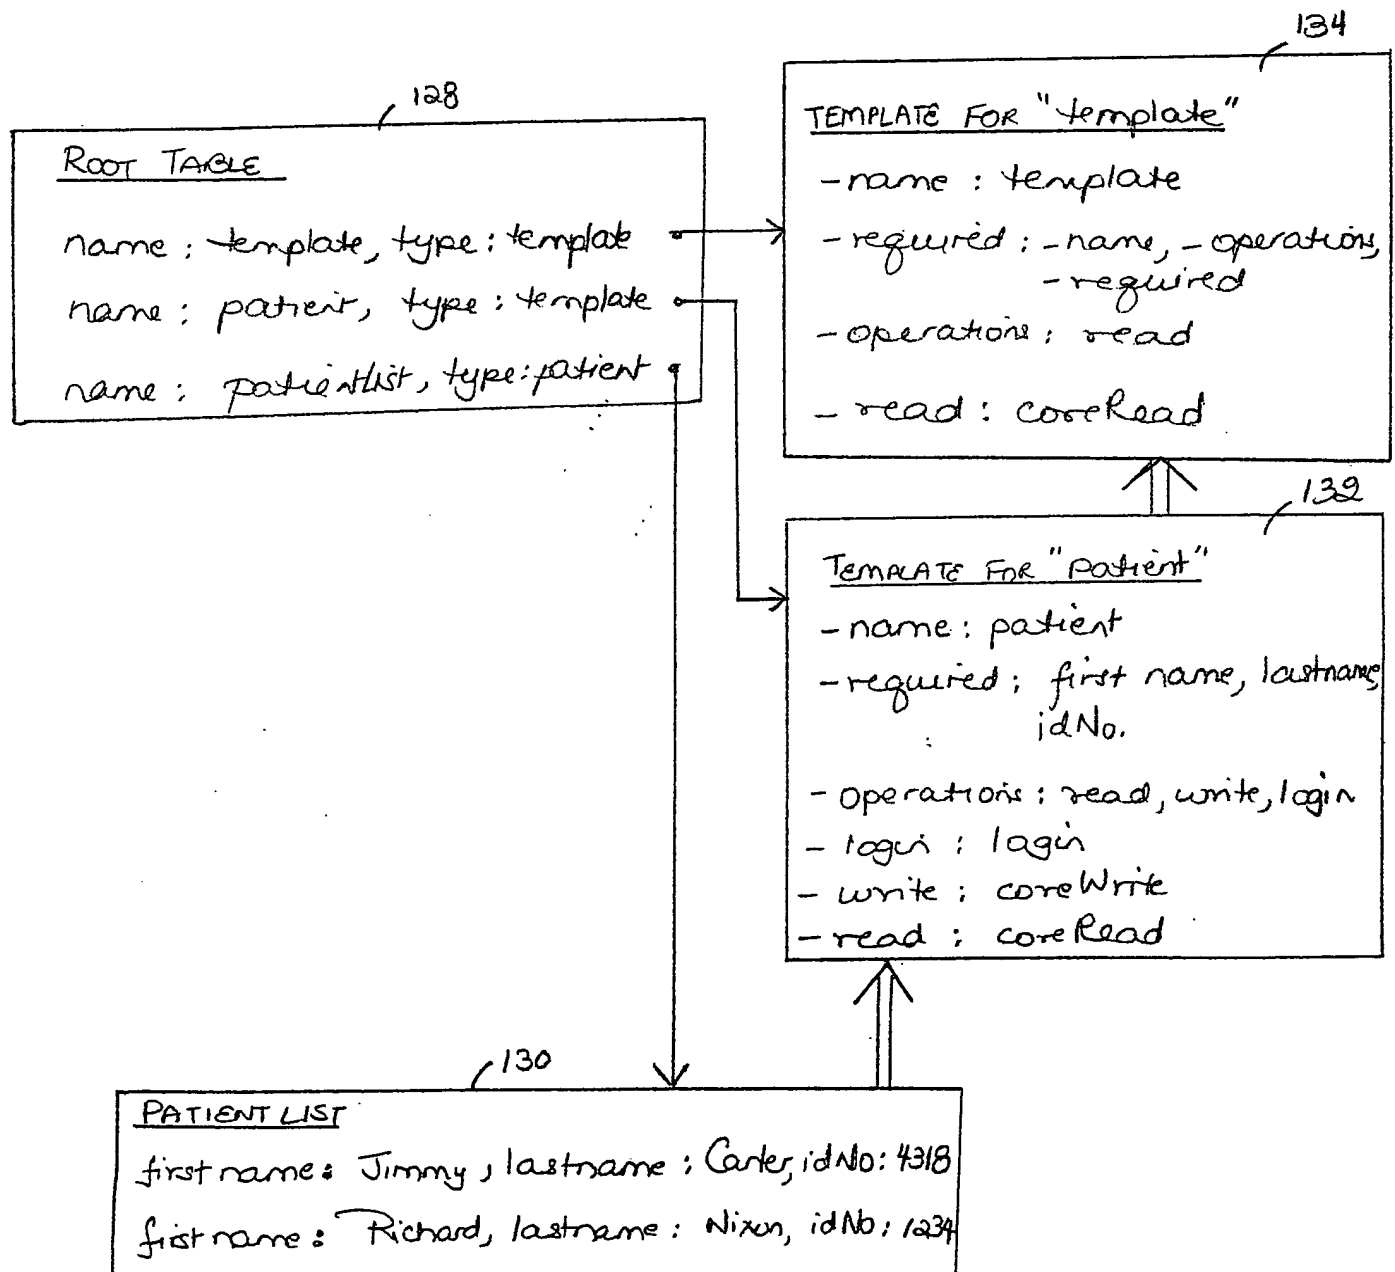 128
ROOT TABLE
name : template, type : template
name : patient, type : template
name : patientlist, type : patient
134
TEMPLATE FOR "template"
- name : template
- required : - name, - operations,
- required
- operations : read
- read : coreRead
132
TEMPLATE FOR "patient"
- name : patient
- required : first name, lastname,
idNo.
- operations : read, write, login
- login : login
- write : coreWrite
- read : coreRead
130
PATIENT LIST
first name : Jimmy, lastname : Carter, idNo : 4318
first name : Richard, lastname : Nixon, idNo : 1234